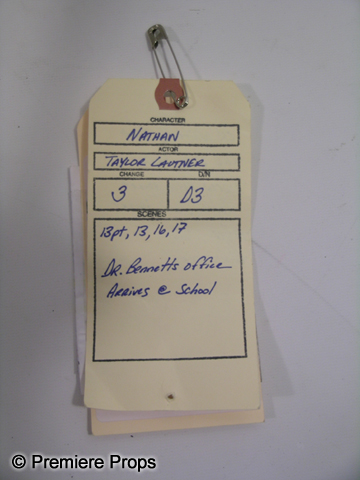 CHARACTER
NATHAN
ACTOR
TAYLOR LAUTNER
CHANGE D/N
3 D3
SCENES
13pt, 13, 16, 17
DR. BENNETTS OFFICE
ARRIVES @ SCHOOL
© Premiere Props